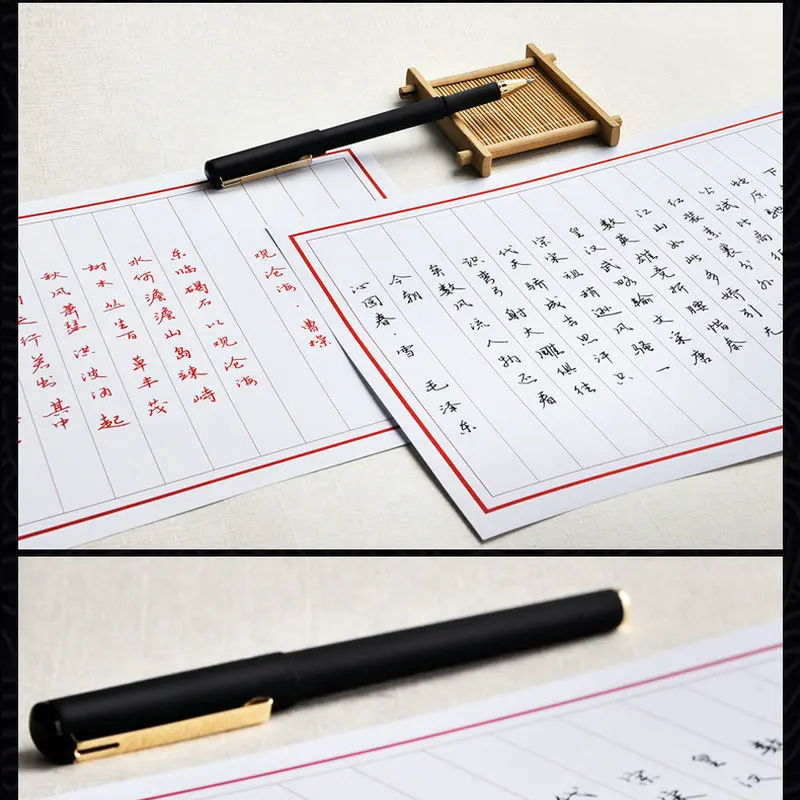 红装素裹分外
江山如此多娇引无
数英雄竞折腰惜秦
皇汉武略输文采唐
宗宋祖稍逊风骚一
代天骄成吉思汗只
识弯弓射大雕俱往
矣数风流人物还看
今朝
沁园春·雪 毛泽东
观沧海·曹操
东临碣石以观沧海
水何澹澹山岛竦峙
树木丛生百草丰茂
秋风萧瑟洪波涌起
之行若出其中
数
皇汉
宗宋
代